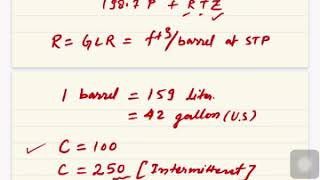 198.7 P + R T Z
R = GLR = ft³/barrel at STP
1 barrel = 159 liter
= 42 gallon (U.S)
✓ C = 100
C = 250 [Intermittent]